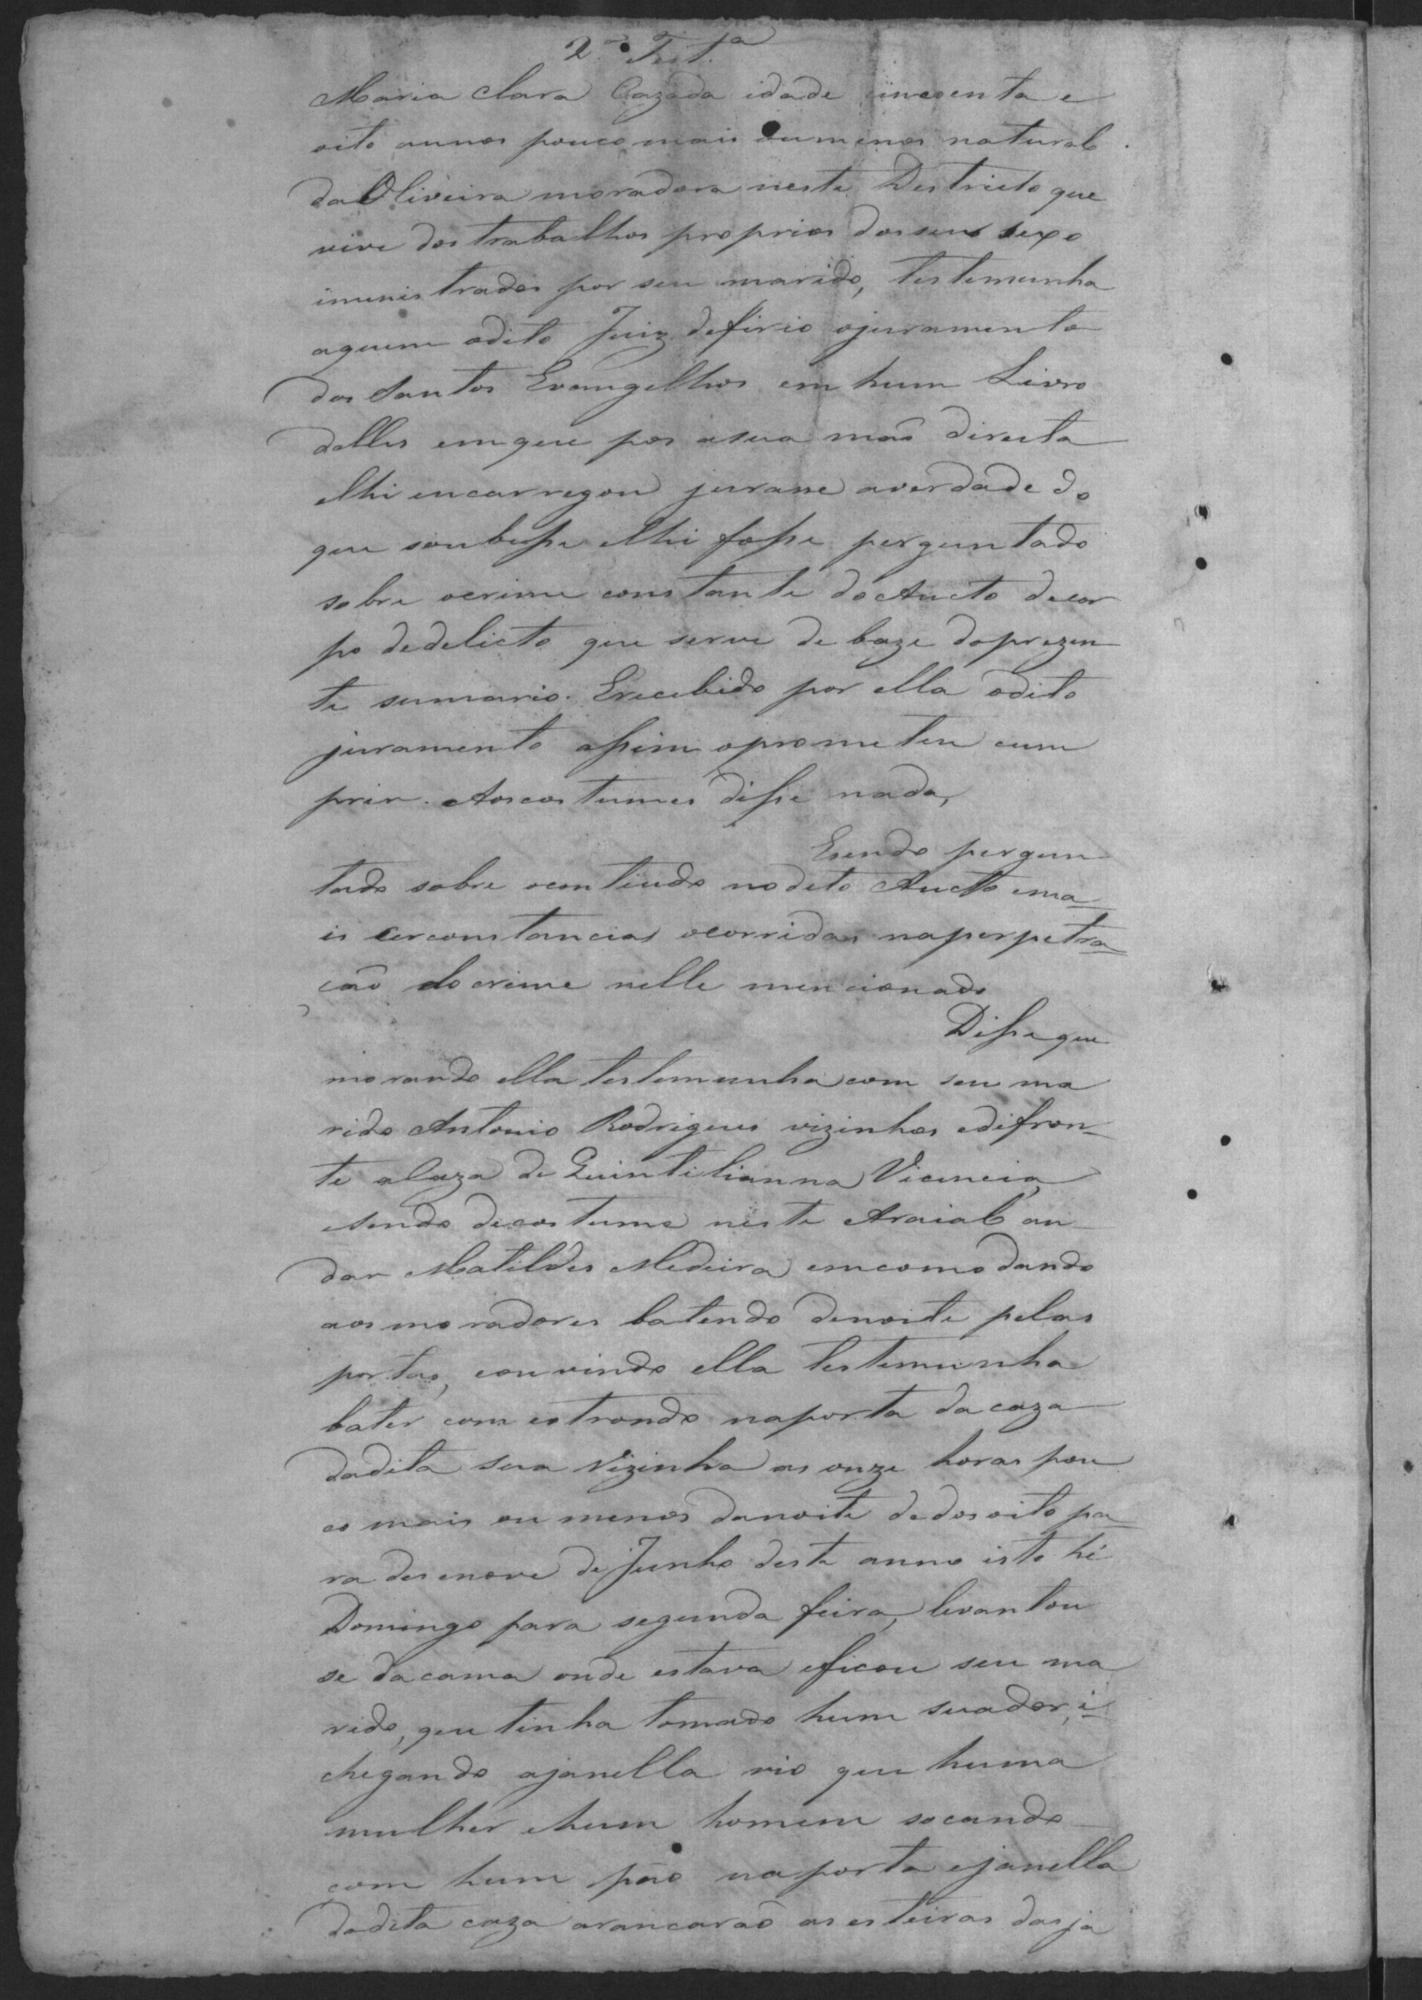 2.ª Test.ª
Maria Clara Cazada idade cincoenta e
oito annos pouco mais ou menos natural
da Oliveira moradora neste Destricto que
vive dos trabalhos proprios do seu sexo
iministrados por seu marido, testemunha
aquem odito Juiz defirio ojuramento
dos Santos Evangelhos em hum Livro
delles emque pos asua maõ directa
elhi encarregou jurasse averdade do
que soubesse elhi fosse perguntado
sobre ocrime constante do Aucto decor
po dedelicto que serve de baze doprezen
te sumario. Erecebido por ella odito
juramento assim oprometeu cum
prir. Aoscostumes disse nada,
Esendo pergun
tado sobre ocontiudo nodito Aucto ema=
is cerconstancias ocorridas naperpetra=
caõ do crime nelle mencionado
Disse que
morando ella testemunha com seu ma
rido Antonio Rodrigues vizinhos edifron=
te acaza de Quintilianna Vicencia,
sendo decostume neste Araial an
dar Matildes Medeira emcomodando
aos moradores batendo denoite pelas
portas, eouvindo ella testemunha
bater com estrondo naporta dacaza
dadita sua vizinha as onze horas pou
co mais ou menos danoite dedosoito pa=
ra desenove de Junho deste anno isto hé
Domingo para segunda feira, levantou
se dacama onde estava eficou seu ma
rido, que tinha tomado hum suador, i=
chegando ajanella vio que huma
mulher ehum homem socando
com hum páo naporta ejanella
dadita caza arancaraõ as esteiras dasja